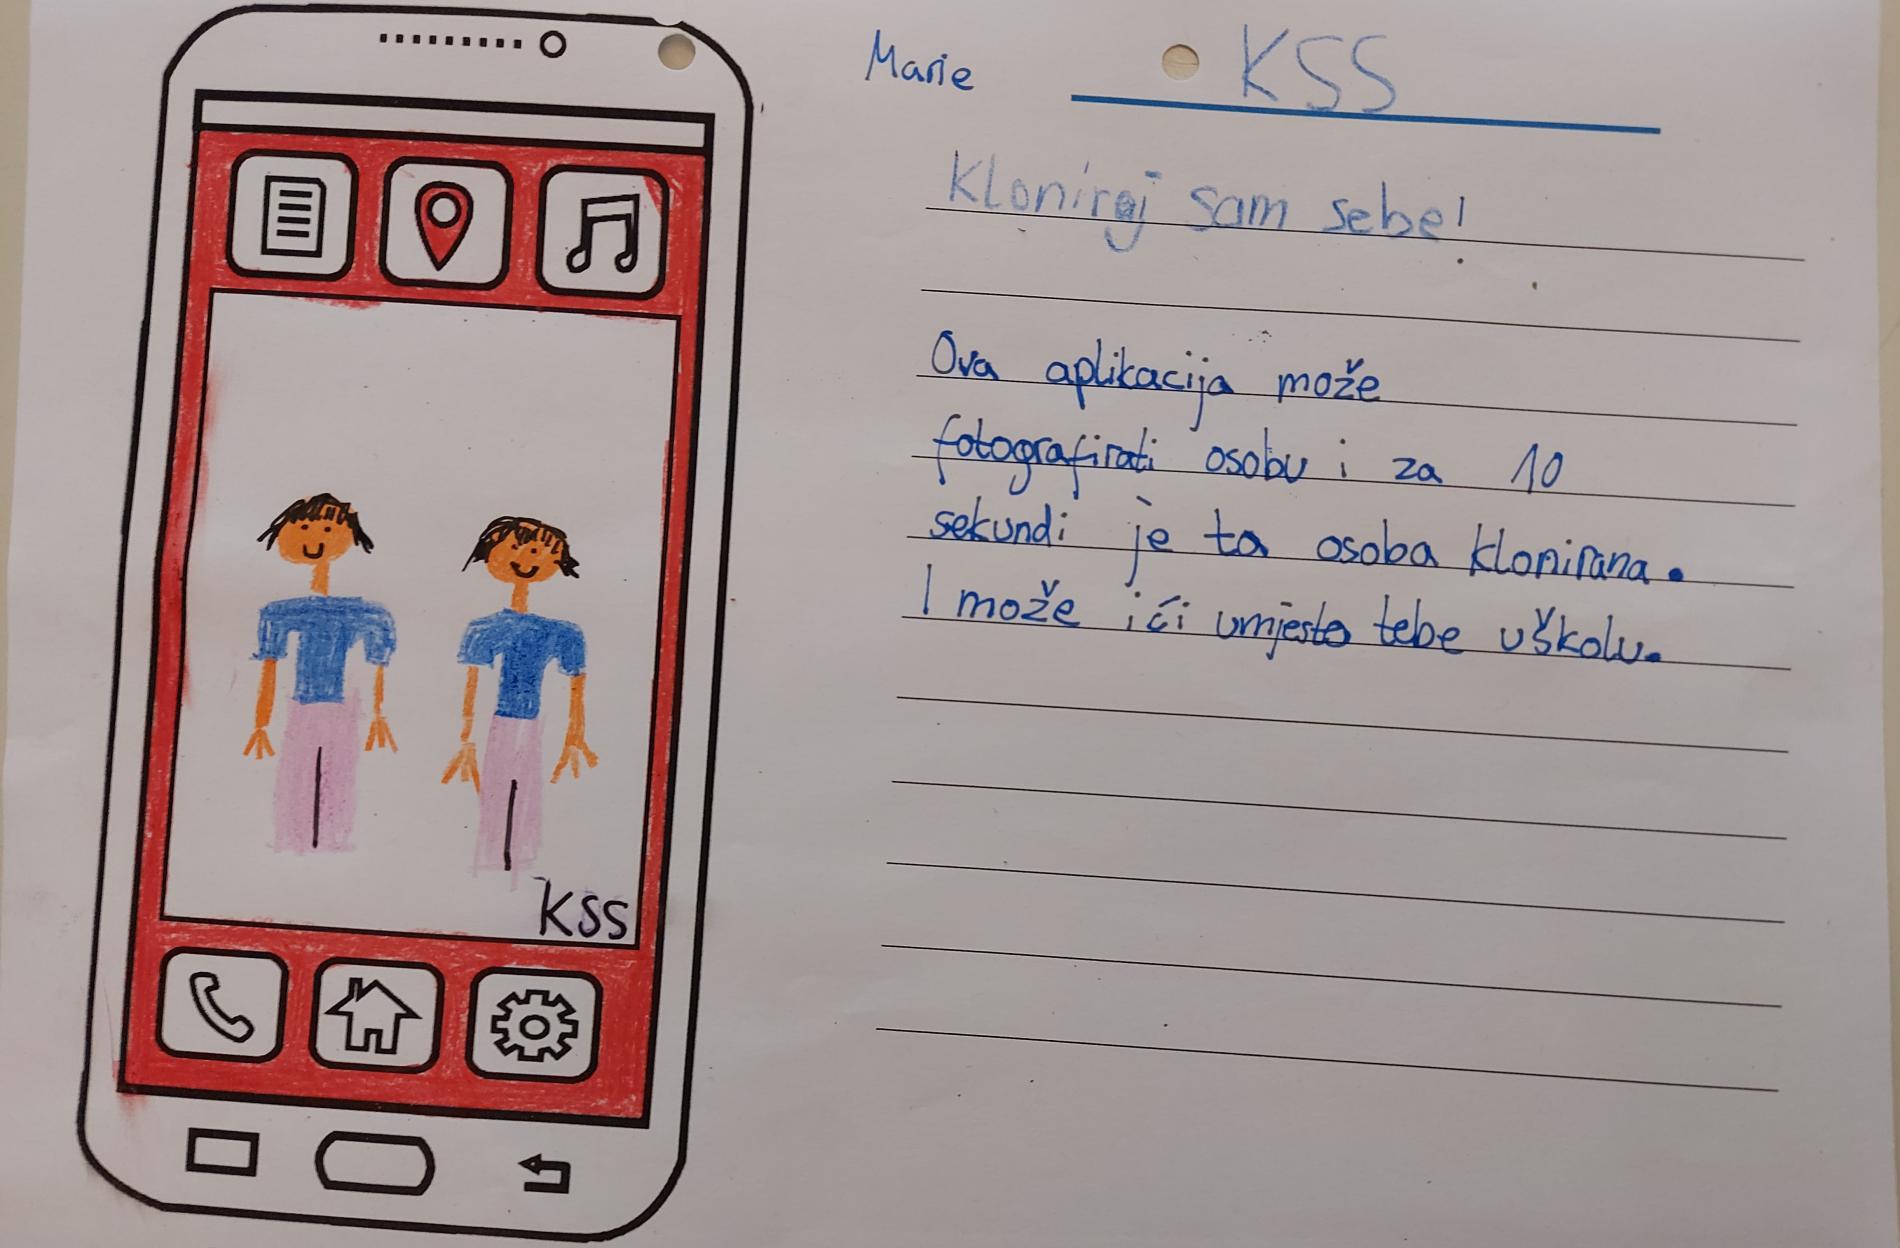 Marie
KSS
Kloniraj sam sebe!
Ova aplikacija može
fotografirati osobu i za 10
sekundi je ta osoba klonirana.
I može ići umjesto tebe uškolu.
KSS